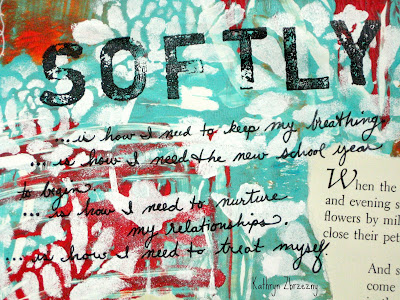 SOFTLY
... is how I need to keep my breathing.
... is how I need the new school year
to begin.
... is how I need to nurture
my relationships.
... is how I need to treat myself.
When the
and evening s
flowers by mil
close their pet
And s
come
Kathryn Zbrzezny